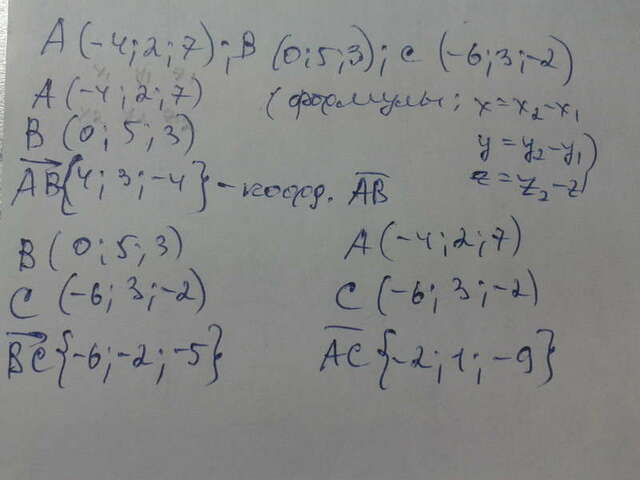 A (-4; 2; 7); B (0; 5; 3); C (-6; 3; -2)
A (-4; 2; 7) (формулы: x = x₂-x₁
B (0; 5; 3) y = y₂-y₁)
AB {4; 3; -4} - коорд. AB z = z₂-z
B (0; 5; 3) A (-4; 2; 7)
C (-6; 3; -2) C (-6; 3; -2)
BC {-6; -2; -5} AC {-2; 1; -9}